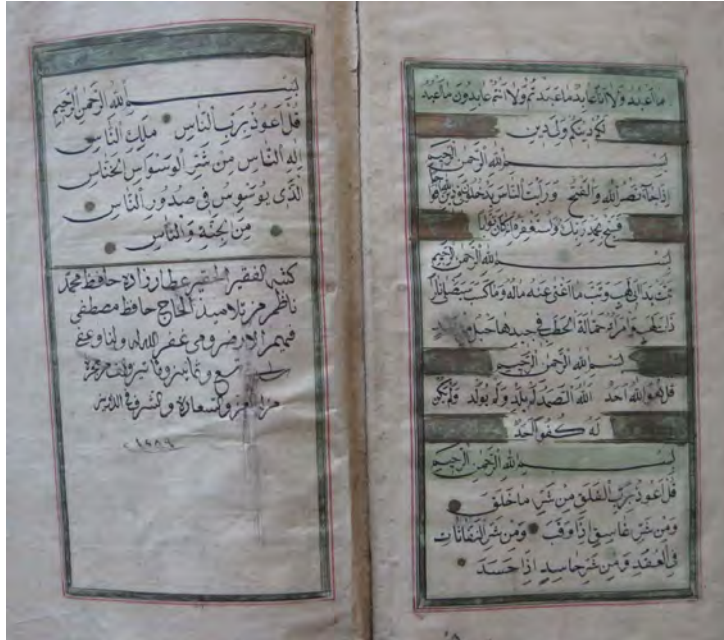 ما اعبد ولا انا عابد ما عبدتم ولا انتم عابدون ما اعبد
لكم دينكم ولى دين
بسم الله الرحمن الرحيم
اذا جاء نصر الله والفتح ورايت الناس يدخلون فى دين الله افواجا
فسبح بحمد ربك واستغفره انه كان توابا
بسم الله الرحمن الرحيم
تبت يدا ابى لهب وتب ما اغنى عنه ماله وما كسب سيصلى نارا
ذات لهب وامراته حمالة الحطب فى جيدها حبل
بسم الله الرحمن الرحيم
قل هو الله احد الله الصمد لم يلد ولم يولد ولم يكن
له كفوا احد
بسم الله الرحمن الرحيم
قل اعوذ برب الفلق من شر ما خلق
ومن شر غاسق اذا وقب ومن شر النفاثات
فى العقد ومن شر حاسد اذا حسد
بسم الله الرحمن الرحيم
قل اعوذ برب الناس ملك الناس
اله الناس من شر الوسواس الخناس
الذى يوسوس فى صدور الناس
من الجنة والناس
كتبه الفقير الحقير عطار زاده حافظ محمد
ناظم من تلاميذ الحاج حافظ مصطفى
غفر الله له ولنا
تسع وثمانين ومائتين والف من هجرة
من له العز والسعادة والشرف
١٢٨٩